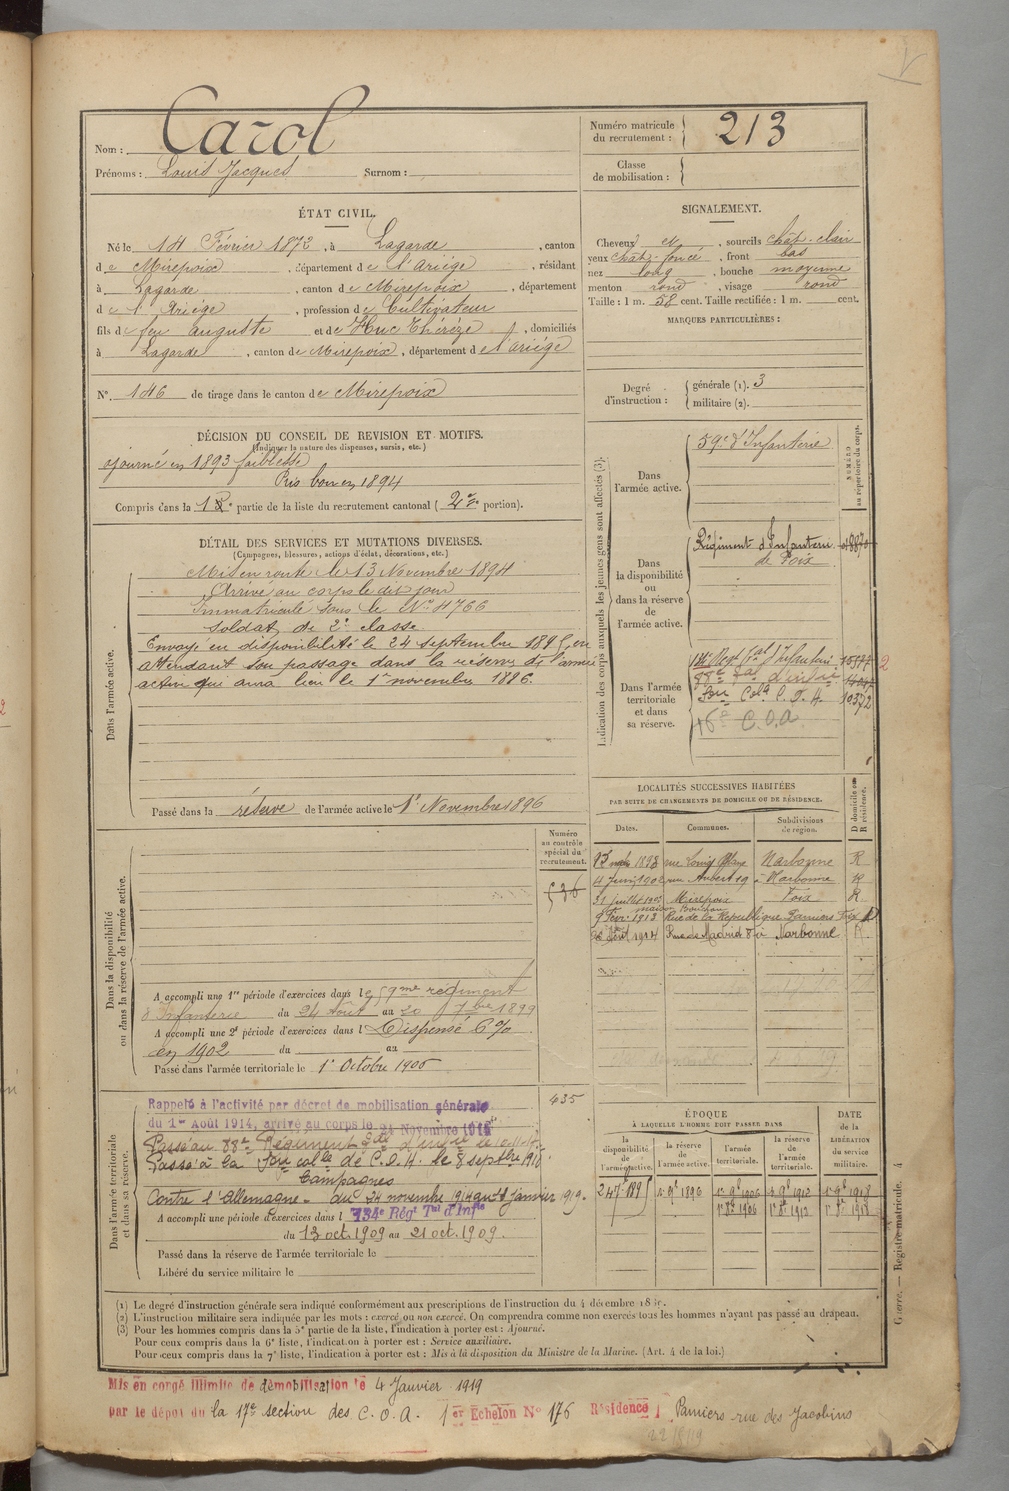 Nom : Carol
Prénoms : Louis Jacques Surnom :
Numéro matricule du recrutement : 213
Classe de mobilisation :
ÉTAT CIVIL.
Né le 14 Février 1873, à Lagarde, canton
de Mirepoix, département de l'Ariège, résidant
à Lagarde, canton de Mirepoix, département
d e l'Ariège, profession de Cultivateur
fils de feu Auguste et de Huc Thérèze, domiciliés
à Lagarde, canton de Mirepoix, département de l'Ariège
N° 146 de tirage dans le canton de Mirepoix
SIGNALEMENT.
Cheveux et, sourcils chât-clair
yeux chât-foncé, front bas
nez long, bouche moyenne
menton rond, visage rond
Taille : 1 m. 58 cent. Taille rectifiée : 1 m. cent.
MARQUES PARTICULIÈRES :
Degré d'instruction : générale (1). 3
militaire (2).
DÉCISION DU CONSEIL DE REVISION ET MOTIFS.
(Indiquer la nature des dispenses, sursis, etc.)
ajourné en 1893 faiblesse
Pris bon en 1894
Compris dans la 1re partie de la liste du recrutement cantonal (2e portion).
DÉTAIL DES SERVICES ET MUTATIONS DIVERSES.
(Campagnes, blessures, actions d'éclat, décorations, etc.)
Dans l'armée active.
Mis en route le 13 Novembre 1894
Arrivé au corps le dit jour
Immatriculé sous le N° 4766
Soldat de 2e classe
Envoyé en disponibilité le 24 septembre 1895, en
attendant son passage dans la réserve de l'armée
active qui aura lieu le 1er novembre 1896.
Passé dans la réserve de l'armée active le 1er Novembre 1896
Indication des corps auxquels les jeunes gens sont affectés (3).
NUMÉRO au répertoire du corps.
Dans l'armée active.
59e d'Infanterie
Dans la disponibilité ou dans la réserve de l'armée active.
Régiment d'Infanterie
de Foix
Dans l'armée territoriale et dans sa réserve.
16e C.O.A
10372
LOCALITÉS SUCCESSIVES HABITÉES
PAR SUITE DE CHANGEMENTS DE DOMICILE OU DE RÉSIDENCE.
Dates. Communes. Subdivisions de région. D domicile ou R résidence.
1898 rue Louis Blanc Narbonne R
4 Juin 1902 rue Aubert 19 à Narbonne R
31 juillet 1903 Mirepoix Foix R
9 Févr. 1913 Rue de la République Pamiers Foix D
1914 Rue de Madrid 8 à Narbonne R.
Numéro au contrôle spécial du recrutement.
536
Dans la disponibilité ou dans la réserve de l'armée active.
A accompli une 1re période d'exercices dans le 59me régiment
d'Infanterie du 24 Août au 20 7bre 1899
A accompli une 2e période d'exercices dans l Dispensé 6%
en 1902 du au
Passé dans l'armée territoriale le 1er Octobre 1906
Dans l'armée territoriale et dans sa réserve.
435
Rappelé à l'activité par décret de mobilisation générale
du 1er Août 1914, arrivé au corps le 24 Novembre 1914
Passé au 88e Régiment
Passé à la
Campagnes
Contre l'Allemagne - du 24 novembre 1914 au janvier 1919.
A accompli une période d'exercices dans l 134e Régt Tal d'Infie
du 13 oct. 1909 au 21 oct. 1909.
Passé dans la réserve de l'armée territoriale le
Libéré du service militaire le
ÉPOQUE
À LAQUELLE L'HOMME DOIT PASSER DANS
la disponibilité de l'armée active. la réserve de l'armée active. l'armée territoriale. la réserve de l'armée territoriale.
DATE de la LIBÉRATION du service militaire.
(1) Le degré d'instruction générale sera indiqué conformément aux prescriptions de l'instruction du 4 décembre
(2) L'instruction militaire sera indiquée par les mots : exercé ou non exercé. On comprendra comme non exercés tous les hommes n'ayant pas passé au drapeau.
(3) Pour les hommes compris dans la 5e partie de la liste, l'indication à porter est : Ajourné.
Pour ceux compris dans la 6e liste, l'indication à porter est : Service auxiliaire.
Pour ceux compris dans la 7e liste, l'indication à porter est : Mis à la disposition du Ministre de la Marine. (Art. 4 de la loi.)
Guerre. — Registre matricule. 4
Mis en congé illimité de démobilisation le 4 Janvier 1919
par le dépôt du la 17e section des C.O.A. 1er Echelon N° 176 Résidence Pamiers rue des Jacobins